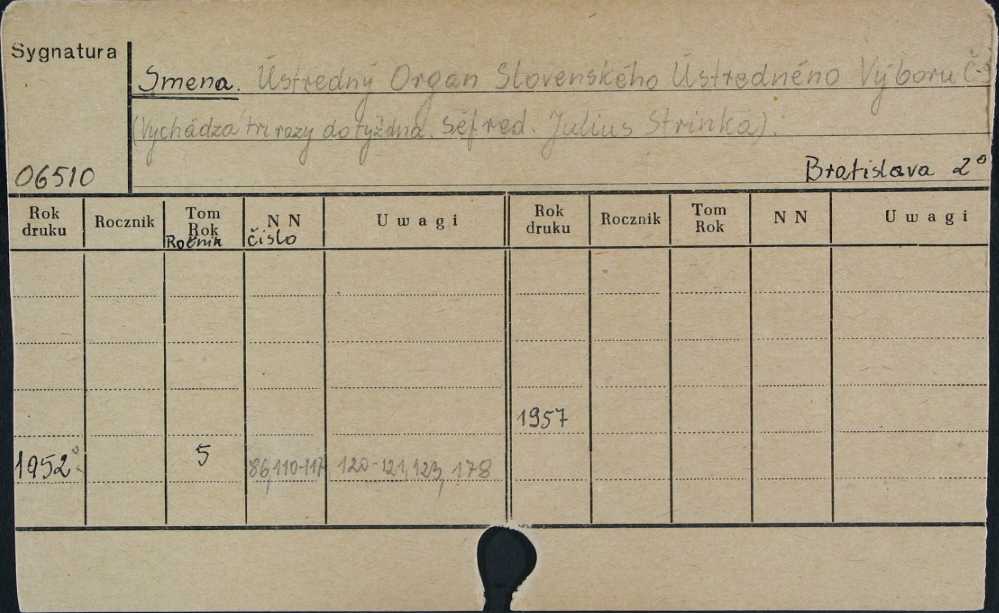 Sygnatura
Smena. Ústredný Organ Slovenského Ústredného Výboru Č
(Vychádza tri razy do týždňa. šéfred. Julius Strinka).
06510
Bratislava 2°
Rok druku Rocznik Tom Rok N N Uwagi Rok druku Rocznik Tom Rok N N Uwagi
Ročnik čislo
1957
1952 5 86,110-117 120-121,123,178